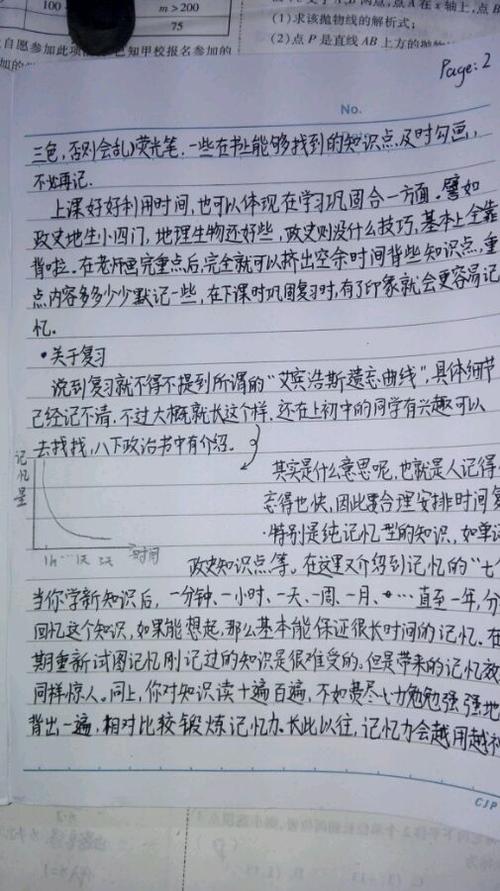 100
m>200
75
自愿参加此项
知甲校报名参加的
(1)求该抛物线的解析式;
(2)点P是直线AB上方的抛物
Page:2
No.
三色,否则会乱)荧光笔.一些在书上能够找到的知识点及时勾画,
不必再记.
上课好好利用时间,也可以体现在学习巩固合一方面.譬如
政史地生小四门,地理生物还好些,政史则没什么技巧,基本上全靠
背啦.在老师画完重点后,完全就可以挤出空余时间背些知识点,重
点内容多多少少默记一些,在下课时巩固复习时,有了印象就会更容易记
忆.
•关于复习
说到复习就不得不提到所谓的"艾宾浩斯遗忘曲线",具体细节
已经记不清,不过大概就长这个样,还在上初中的同学有兴趣可以
去找找,八下政治书中有介绍.
记忆量
其实是什么意思呢,也就是人记得
忘得也快,因此要合理安排时间复
.特别是纯记忆型的知识,如单词
1h…1天
时间
政史知识点等,在这里又介绍到记忆的"七个
当你学新知识后,一分钟、一小时、一天、一周、一月、…直至一年,分
回忆这个知识,如果能想起,那么基本能保证很长时间的记忆.在
期重新试图记忆刚记过的知识是很难受的.但是带来的记忆效
同样惊人.同上,你对知识读十遍百遍,不如费尽七力勉勉强强地
背出一遍,相对比较锻炼记忆力.长此以往,记忆力会越用越